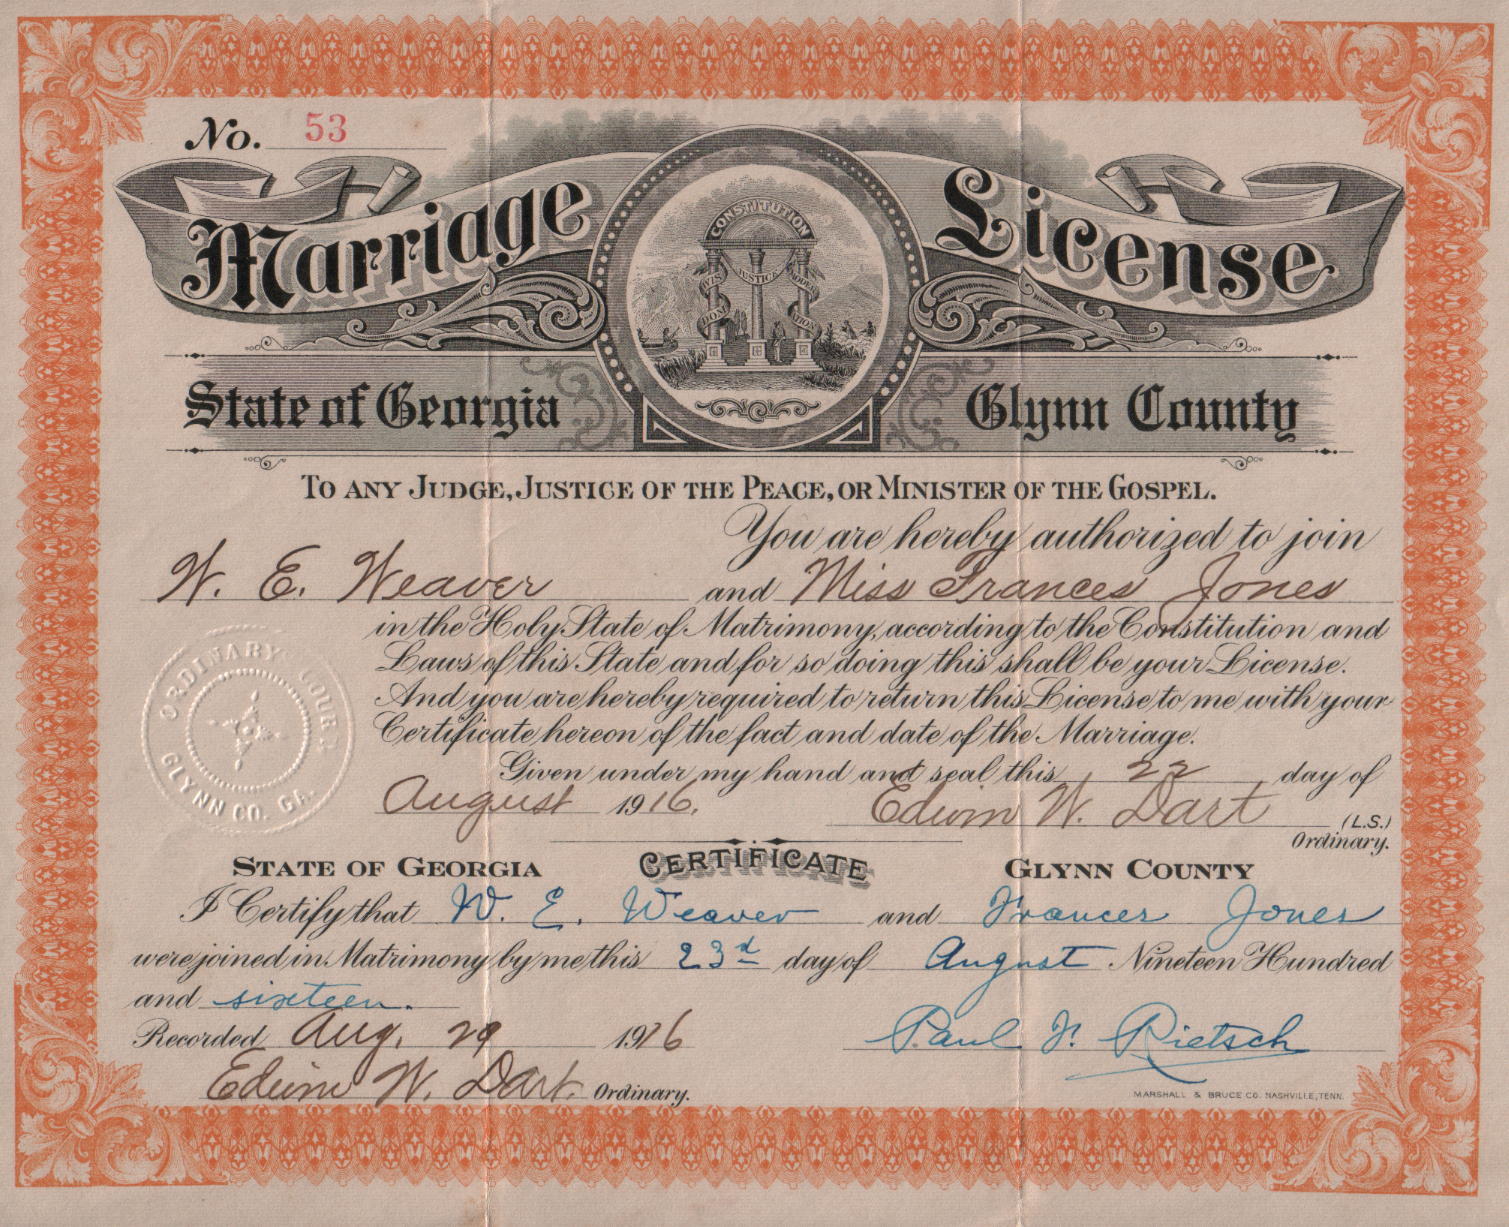 No. 53
Marriage License
CONSTITUTION
WISDOM JUSTICE MODERATION
State of Georgia Glynn County
TO ANY JUDGE, JUSTICE OF THE PEACE, OR MINISTER OF THE GOSPEL.
You are hereby authorized to join
W. E. Weaver and Miss Frances Jones
in the Holy State of Matrimony, according to the Constitution and
Laws of this State and for so doing this shall be your License.
And you are hereby required to return this License to me with your
Certificate hereon of the fact and date of the Marriage.
Given under my hand and seal this 22 day of
August 1916. Edwin W. Dart (L.S.)
Ordinary.
ORDINARY COURT
GLYNN CO. GA.
STATE OF GEORGIA CERTIFICATE GLYNN COUNTY
I Certify that W. E. Weaver and Frances Jones
were joined in Matrimony by me this 23d day of August Nineteen Hundred
and sixteen.
Recorded Aug. 29 1916 Paul F. Rietsch
Edwin W. Dart. Ordinary.
MARSHALL & BRUCE CO. NASHVILLE, TENN.